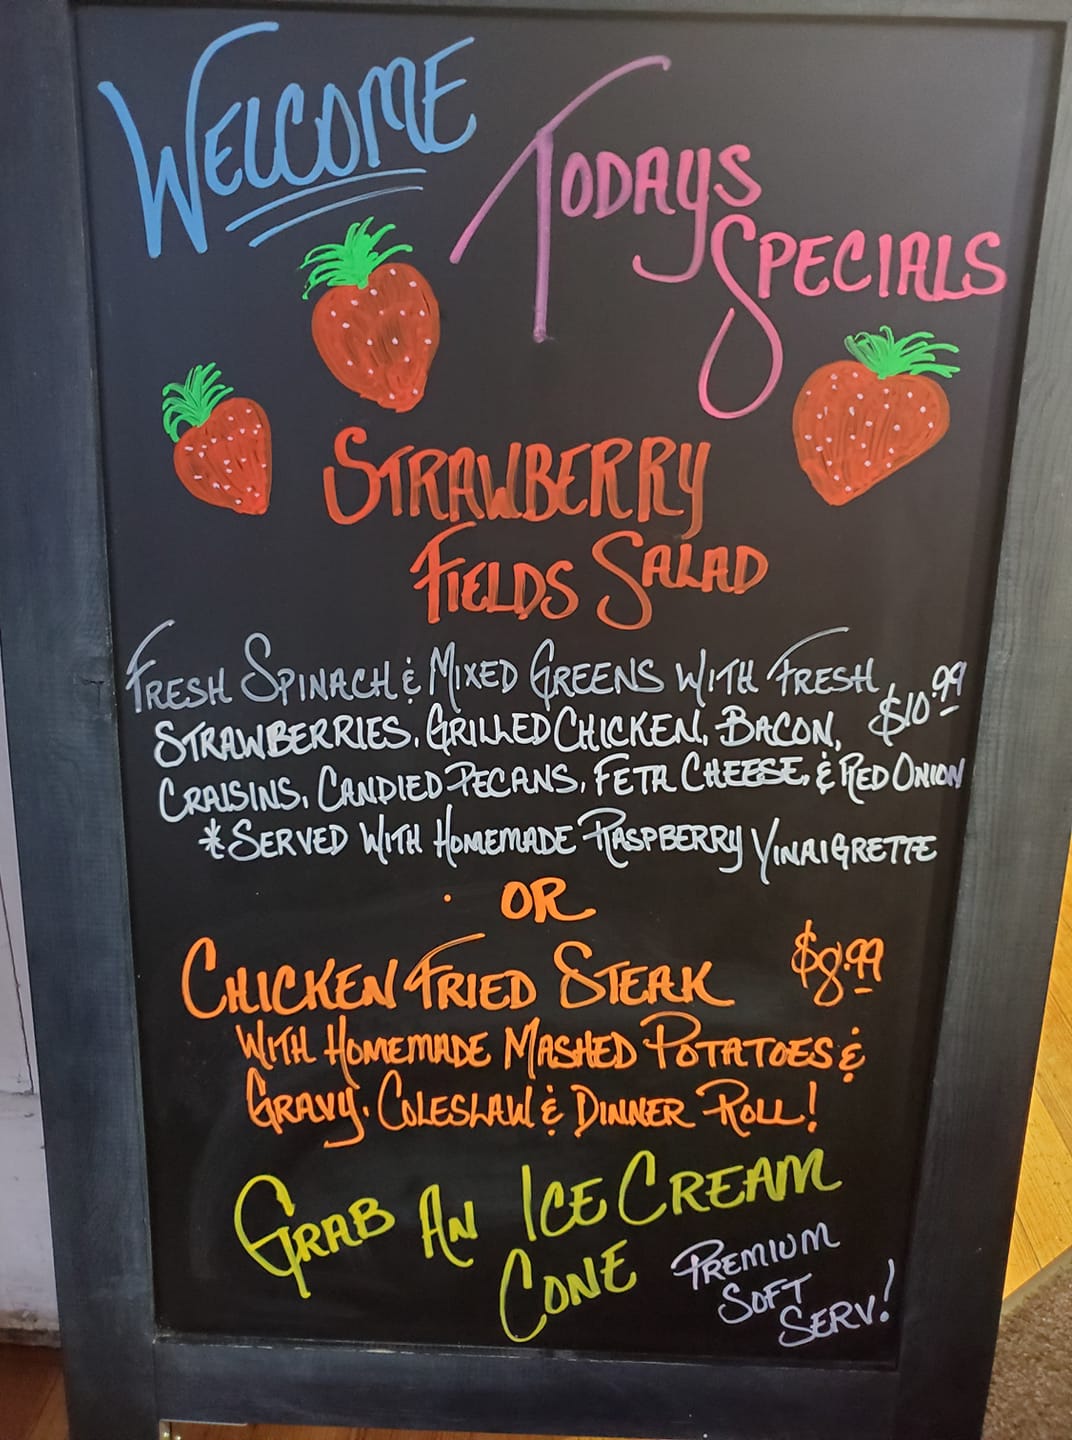 WELCOME
TODAYS
SPECIALS
STRAWBERRY
FIELDS SALAD
FRESH SPINACH & MIXED GREENS WITH FRESH
STRAWBERRIES, GRILLED CHICKEN, BACON, $10.99
CRAISINS, CANDIED PECANS, FETA CHEESE, & RED ONION
*SERVED WITH HOMEMADE RASPBERRY VINAIGRETTE
OR
CHICKEN FRIED STEAK $8.99
WITH HOMEMADE MASHED POTATOES &
GRAVY, COLESLAW & DINNER ROLL!
GRAB AN ICE CREAM
CONE
PREMIUM
SOFT
SERV!